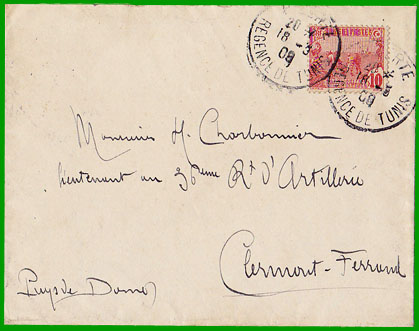 20
18 - 3
09
REGENCE DE TUNIS
10
RTE
18 - 3
09
REGENCE DE TUNIS
Monsieur H. Charbonnier
lieutenant au 36eme Rt d'Artillerie
Clermont-Ferrand
Puy de Dome